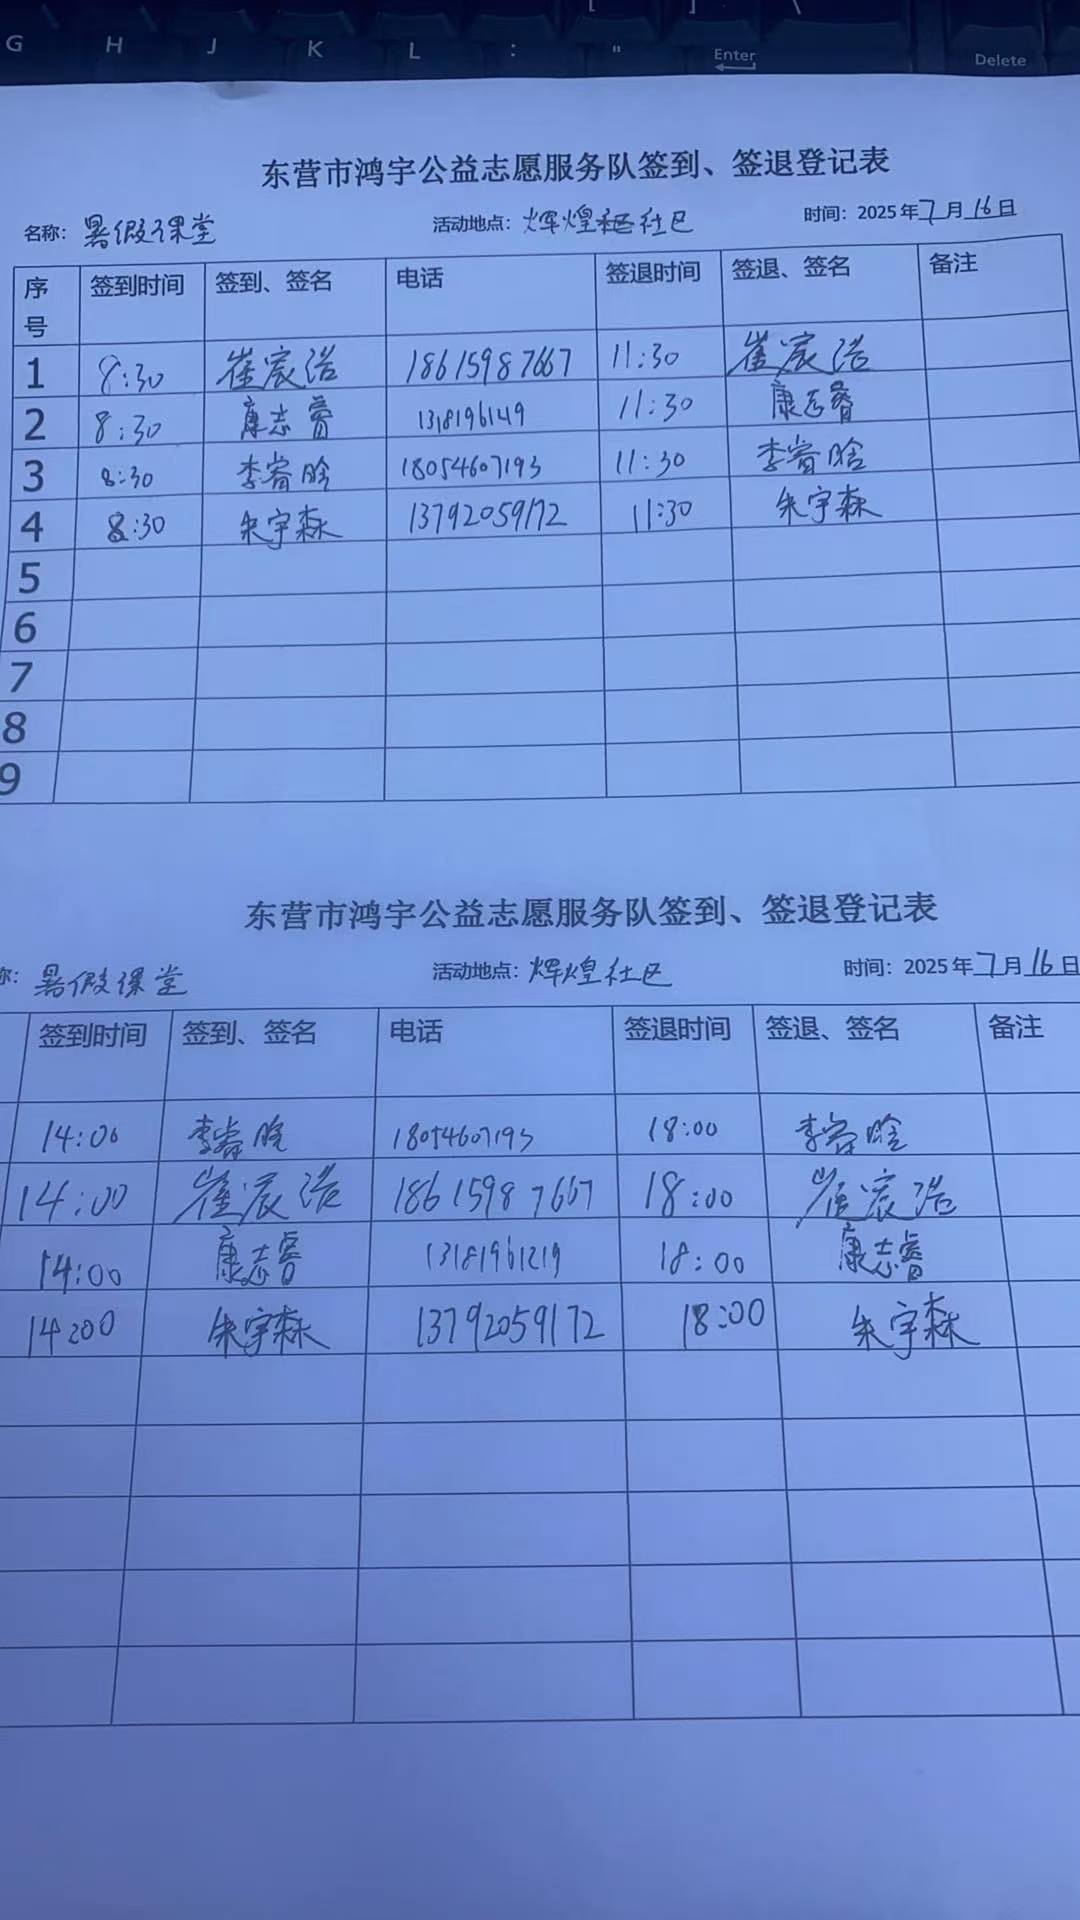 G H J K L : " Enter Delete
[ ] \
东营市鸿宇公益志愿服务队签到、签退登记表
名称：暑假课堂 活动地点：辉煌社区 时间：2025年7月16日
序号 签到时间 签到、签名 电话 签退时间 签退、签名 备注
1 8:30 崔宸浩 18615987667 11:30 崔宸浩
2 8:30 康志睿 1318196149 11:30 康志睿
3 8:30 李睿晗 18054607193 11:30 李睿晗
4 8:30 朱宇森 13792059172 11:30 朱宇森
5
6
7
8
9
东营市鸿宇公益志愿服务队签到、签退登记表
称：暑假课堂 活动地点：辉煌社区 时间：2025年7月16日
签到时间 签到、签名 电话 签退时间 签退、签名 备注
14:00 李睿晗 18054607193 18:00 李睿晗
14:00 崔宸浩 18615987667 18:00 崔宸浩
14:00 康志睿 13181961219 18:00 康志睿
14:00 朱宇森 13792059172 18:00 朱宇森